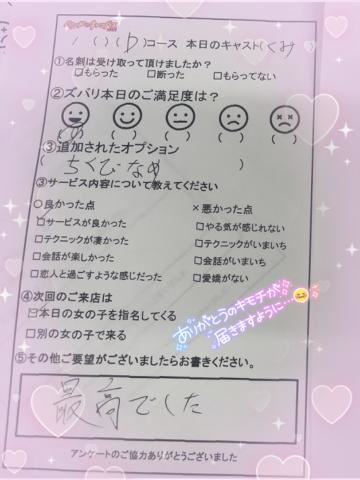 110コース 本日のキャスト(くみ
①名刺は受け取って頂けましたか?
□もらった □断った □もらってない
②ズバリ本日のご満足度は?
( ) ( ) ( ) ( )
③追加されたオプション
( ちくびなめ )
③サービス内容について教えてください
○良かった点 ×悪かった点
□サービスが良かった □やる気が感じれない
□テクニックが凄かった □テクニックがいまいち
□会話が楽しかった □会話がいまいち
□恋人と過ごすような感じだった □愛嬌がない
④次回のご来店は
□本日の女の子を指名してくる
□別の女の子で来る
ありがとうのキモチが
届きますように…
⑤その他ご要望がございましたらお書きください。
最高でした
アンケートのご協力ありがとうございました